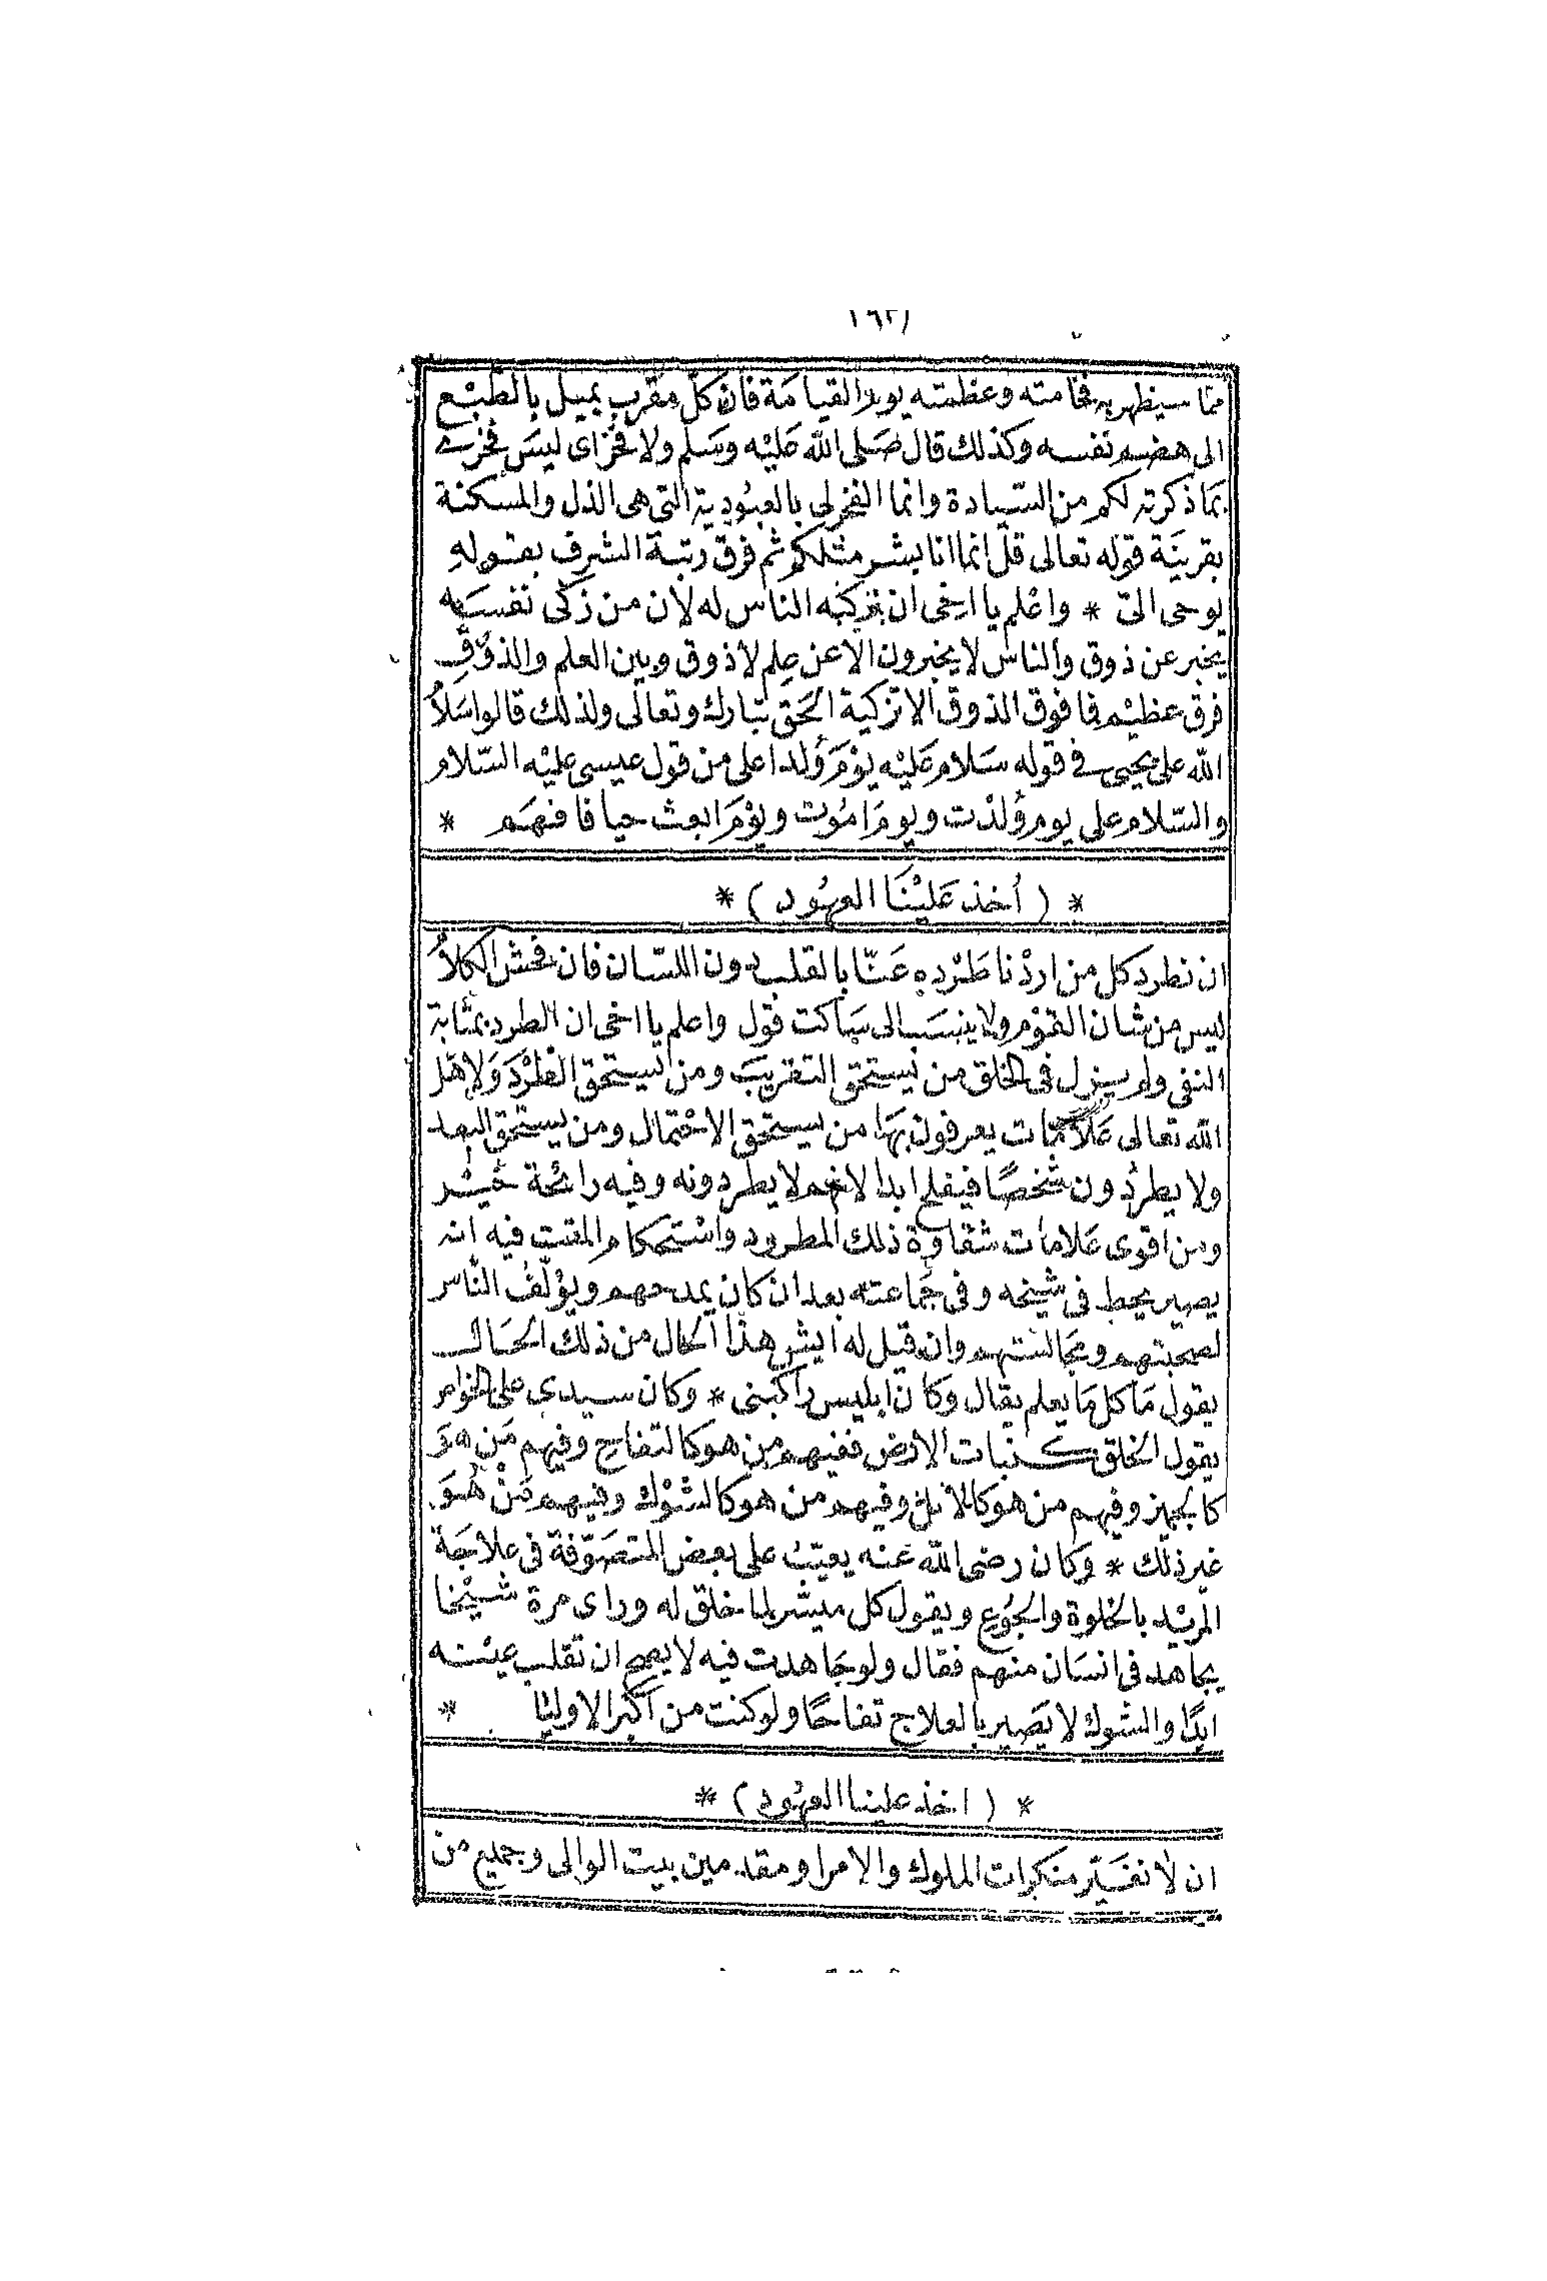 مما سيظهر به فخامته وعظمته يوم القيامة فان كل مقرب يميل بالطبع
الى هضم نفسه وكذلك قال صلى الله عليه وسلم ولا فخر اى ليس فخرى
بما ذكرته لكم من السيادة وانما الفخر لى بالعبودية التى هى الذل والمسكنة
بقرينة قوله تعالى قل انما انا بشر مثلكم ثم فرق رتبة الشرف بقوله
يوحى الىّ * واعلم يا اخى ان تزكية الناس له لان من زكى نفسه
يخبر عن ذوق والناس لا يخبرون الا عن علم لا ذوق وبين العلم والذوق
فرق عظيم فما فوق الذوق الا تزكية الحق تبارك وتعالى ولذلك قالوا سلام
الله على يحيى فى قوله سلام عليه يوم ولد اعلى من قول عيسى عليه السلام
والسلام على يوم ولدت ويوم اموت ويوم ابعث حيا فافهم *
* ( أخذ علينا العهود ) *
ان نطرد كل من اردنا طرده عنا بالقلب دون اللسان فان فحش الكلام
ليس من شان القوم ولا ينسب الى ساكت قول واعلم يا اخى ان الطرد بمثابة
النفى ولم يزل فى الخلق من يستحق التقريب ومن يستحق الطرد ولاهل
الله تعالى علامات يعرفون بها من يستحق الاحتمال ومن يستحق البعد
ولا يطردون شخصا فيفلح ابدا لانهم لا يطردونه وفيه رائحة خير
ومن اقوى علامات شقاوة ذلك المطرود واستحكام المقت فيه انه
يصير يحط فى شيخه وفى جماعته بعد ان كان يمدحهم ويؤلف الناس
لصحبتهم ومجالستهم وان قيل له ايش هذا الحال من ذلك الحال
يقول ما كل ما يعلم يقال وكان ابليس راكبنى * وكان سيدى على الخواص
يقول الخلق كنبات الارض ففيهم من هو كالتفاح وفيهم من هو
كالجميز وفيهم من هو كالاثل وفيهم من هو كالشوك وفيهم من هو
غير ذلك * وكان رضى الله عنه يعيب على بعض المتصوفة فى علاجة
المريد بالخلوة والجوع ويقول كل ميسر لما خلق له وراى مرة شيخا
يجاهد فى انسان منهم فقال ولو جاهدت فيه لا يصح ان تقلب عينه
ابدا والشوك لا يصير بالعلاج تفاحا ولو كنت من اكبر الاوليا *
* ( اخذ علينا العهود ) *
ان لا نغير منكرات الملوك والامرا ومقدمين بيت الوالى وجميع من